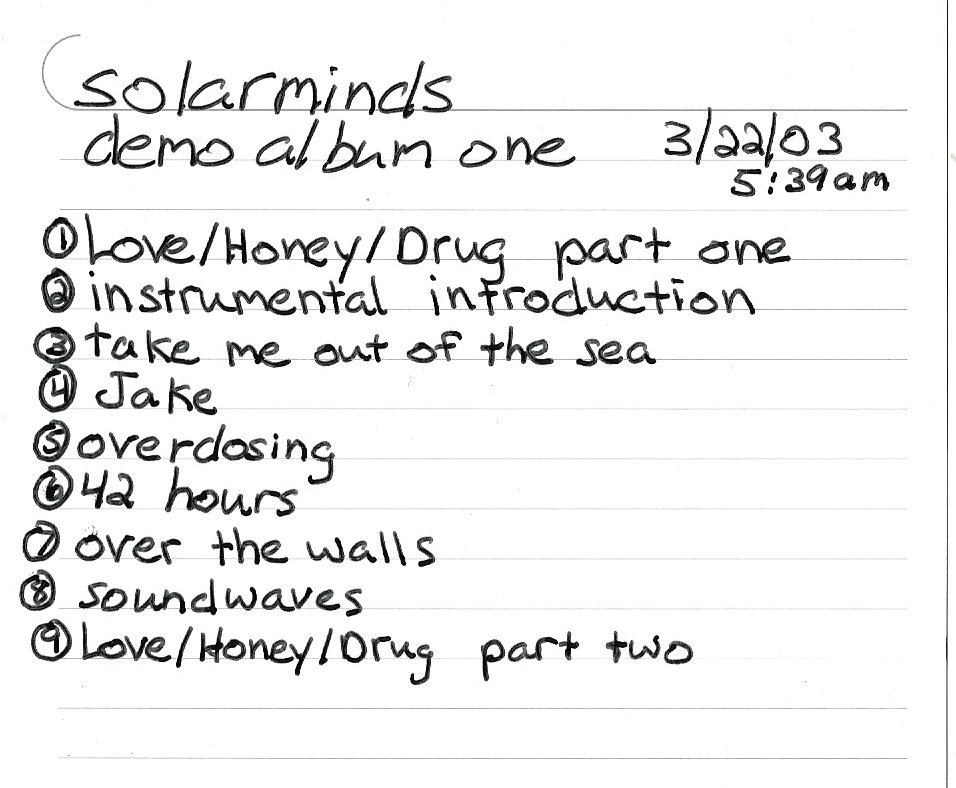 solarminds
demo album one 3/22/03
5:39am
① Love/Honey/Drug part one
② instrumental introduction
③ take me out of the sea
④ Jake
⑤ overdosing
⑥ 42 hours
⑦ over the walls
⑧ soundwaves
⑨ Love/Honey/Drug part two